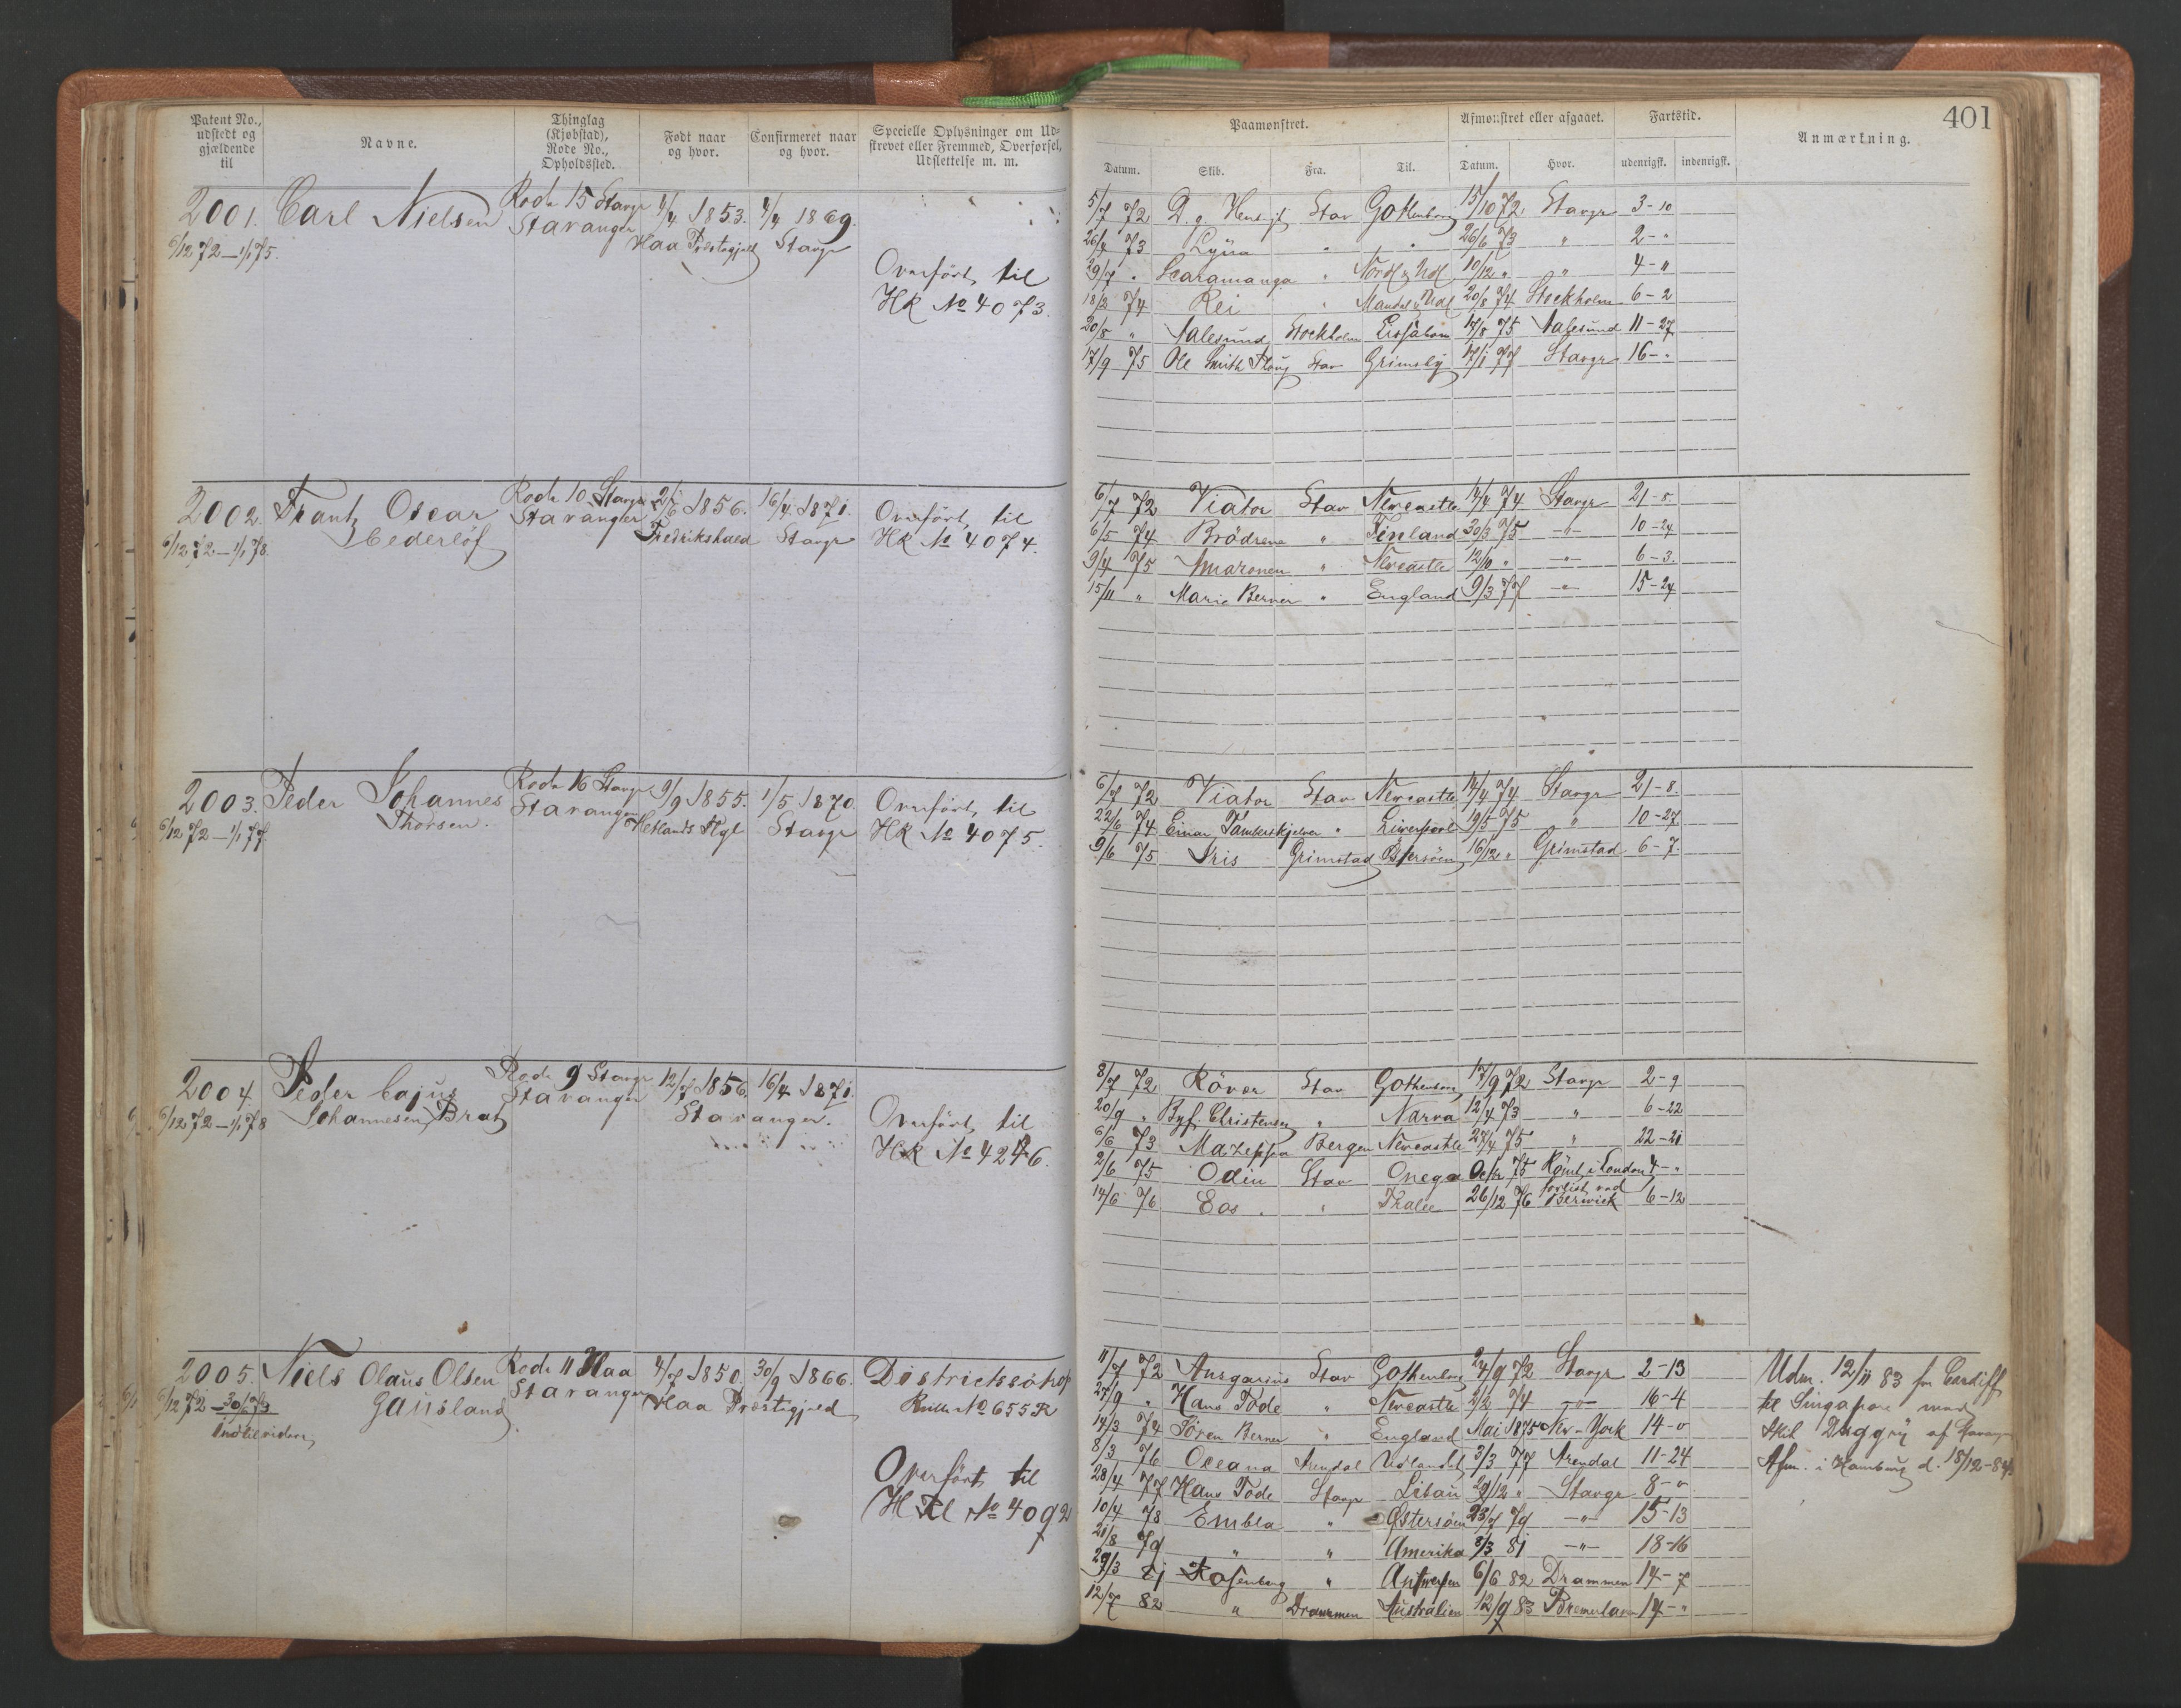 401
Patent No., udstedt og gjældende til | Navne. | Thinglag (Kjøbstad), Rode No., Opholdssted. | Født naar og hvor. | Confirmeret naar og hvor. | Specielle Oplysninger om Udstrevet eller Fremmed, Overførsel, Udslettelse m. m.
Paamønstret. | Afmønstret eller afgaaet. | Fartstid. | Anmærkning.
Datum. | Skib. | Fra. | Til. | Datum. | Hvor. | udenrigsk. | indenrigsk.
2001. Carl Nielsen Rode 15 Stavgr 4/4 1853. 4/4 1869.
6/12 72 – 1/1 75. Stavanger Haa Præstegjeld Stavgr
Overført til
HR No 4073.
5/7 72 Stav Gothenborg 15/10 72 Stavgr 3-10
26/4 73 Lyna " " 26/6 73 " 2-"
29/7 " Scaramanga " 10/12 " " 4-11
18/2 74 Rei " 20/8 74 Stockholm 6-2
20/8 " Aalesund Stockholm Lissabon 17/8 75 Aalesund 11-27
17/9 75 Ole Smith Ploug Stav Grimsby 17/1 77 Stavgr 16-"
2002. Frantz Oscar Rode 10 Stavgr 21/6 1856. 16/4 1871. Overført til
6/12 72 – 1/1 78. Cederlöf Stavanger Fredrikshald Stavgr HR No 4074.
6/7 72 Viator Stav Newcastle 14/4 74 Stavgr 21-8
6/5 74 Brödrene " Finland 30/3 75 -"- 10-24
9/4 75 " Newcastle 12/10 " -"- 6-3.
15/11 " Marie Berner " England 9/3 77 -"- 15-24
2003. Peder Johannes Rode 16 Stavgr 9/9 1855. 1/5 1870. Overført til
6/12 72 – 1/1 77 Thorsen. Stavanger Hetlands Pgl Stavgr HR No 4075.
6/7 72 Viator Stav Newcastle 14/4 74 Stavgr 21-8.
22/6 74 Einar Tambeskjelver " Liverpool 19/5 75 " 10-27
9/6 75 Iris Grimstad Østersöen 16/12 " Grimstad 6-7.
2004. Peder Cajus Rode 9 Stavgr 12/7 1856. 16/4 1871.
6/12 72 – 1/1 78 Johannesen Brat Stavanger Stavanger. Overført til
HR No 4246.
8/7 72 Röver Stav Gothenborg 17/9 72 Stavgr 2-9
20/9 " Byf. Christensen " Narva 12/4 73 " 6-22
6/6 73 Mazeppa Bergen Newcastle 27/4 75 " 22-21
2/6 75 Odin Stav Onega Oct 75 Römt i London 4-"
14/6 76 Eos " 26/12 76 forlist ved Berwick 6-12
2005. Niels Olaus Olsen Rode 11 Haa 4/7 1850. 30/9 1866. Districtssöhof
6/12 72 – 30/6 73 Gausland Stavanger Haa Præstegjeld Rulle No 655 R
Indtil videre
Overført til
H Rl No 4092
11/7 72 Ansgarius Stav Gothenborg 24/9 72 Stavgr 2-13
27/9 " Hans Tode " Newcastle 2/2 74 -"- 16-4
14/3 74 Sören Berner " England Mai 1875 New-York 14-0
8/3 76 Oceana Arendal Udlandet 3/3 77 Arendal 11-24
28/4 77 Hans Tode Stavgr Libau 29/12 " Stavgr 8-"
10/4 78 Embla " Østersöen 23/7 79 -"- 15-13
21/8 79 " " Amerika 8/3 81 -"- 18-16
29/3 81 Rosenberg " Antwerpen 6/6 82 Drammen 14-7
12/7 82 " Drammen Australien 12/9 83 Bremerhavn 14-"
Udm. 12/11 83 fra Cardiff
til Singapore med
Skib Duggry af Stavanger
Afm. i Hamburg d. 18/12-84